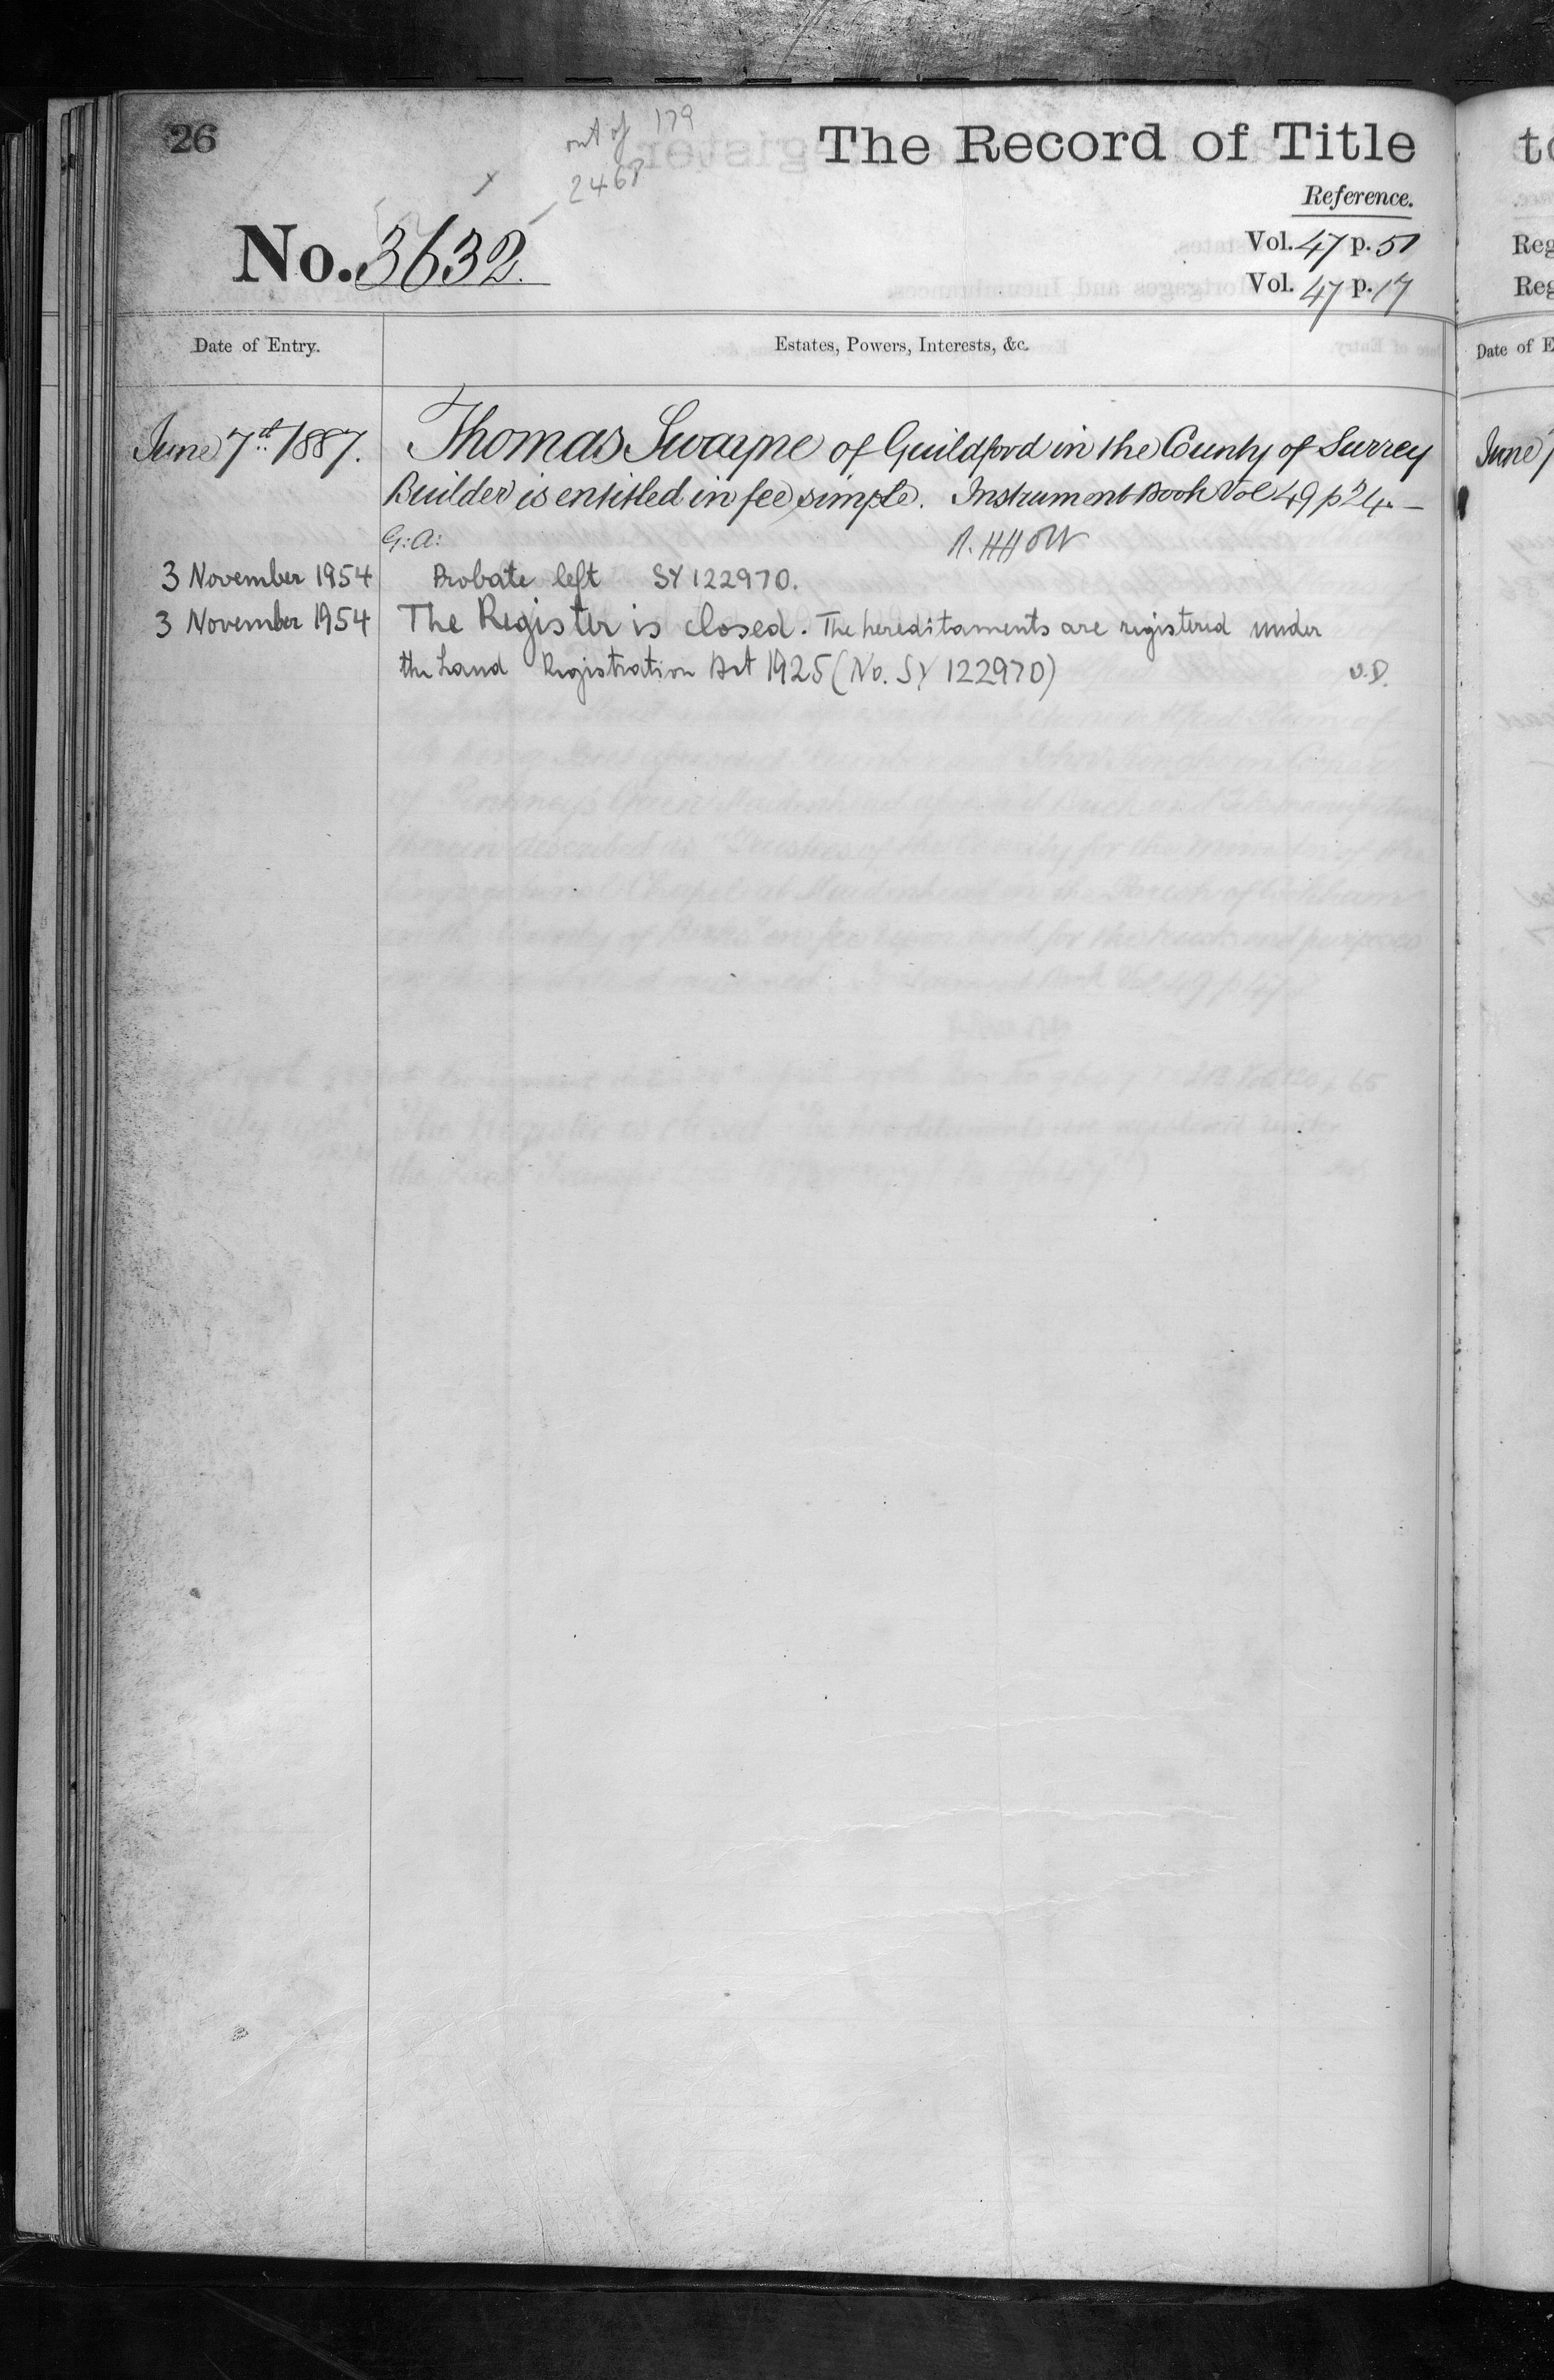 26
out of 179
2468
The Record of Title
Reference.
No. 3632.
Vol. 47 p. 51
Vol. 47 p. 17
Date of Entry.
Estates, Powers, Interests, &c.
June 7th 1887.
Thomas Swayne of Guildford in the County of Surrey
Builder is entitled in fee simple. Instrument Book Vol 49 p 24. —
G: A:
3 November 1954
Probate left SY 122970.
3 November 1954
The Register is closed. The hereditaments are registered under
the Land Registration Act 1925 (No. SY 122970)
v.D.
Reg
Reg
Date of E
June